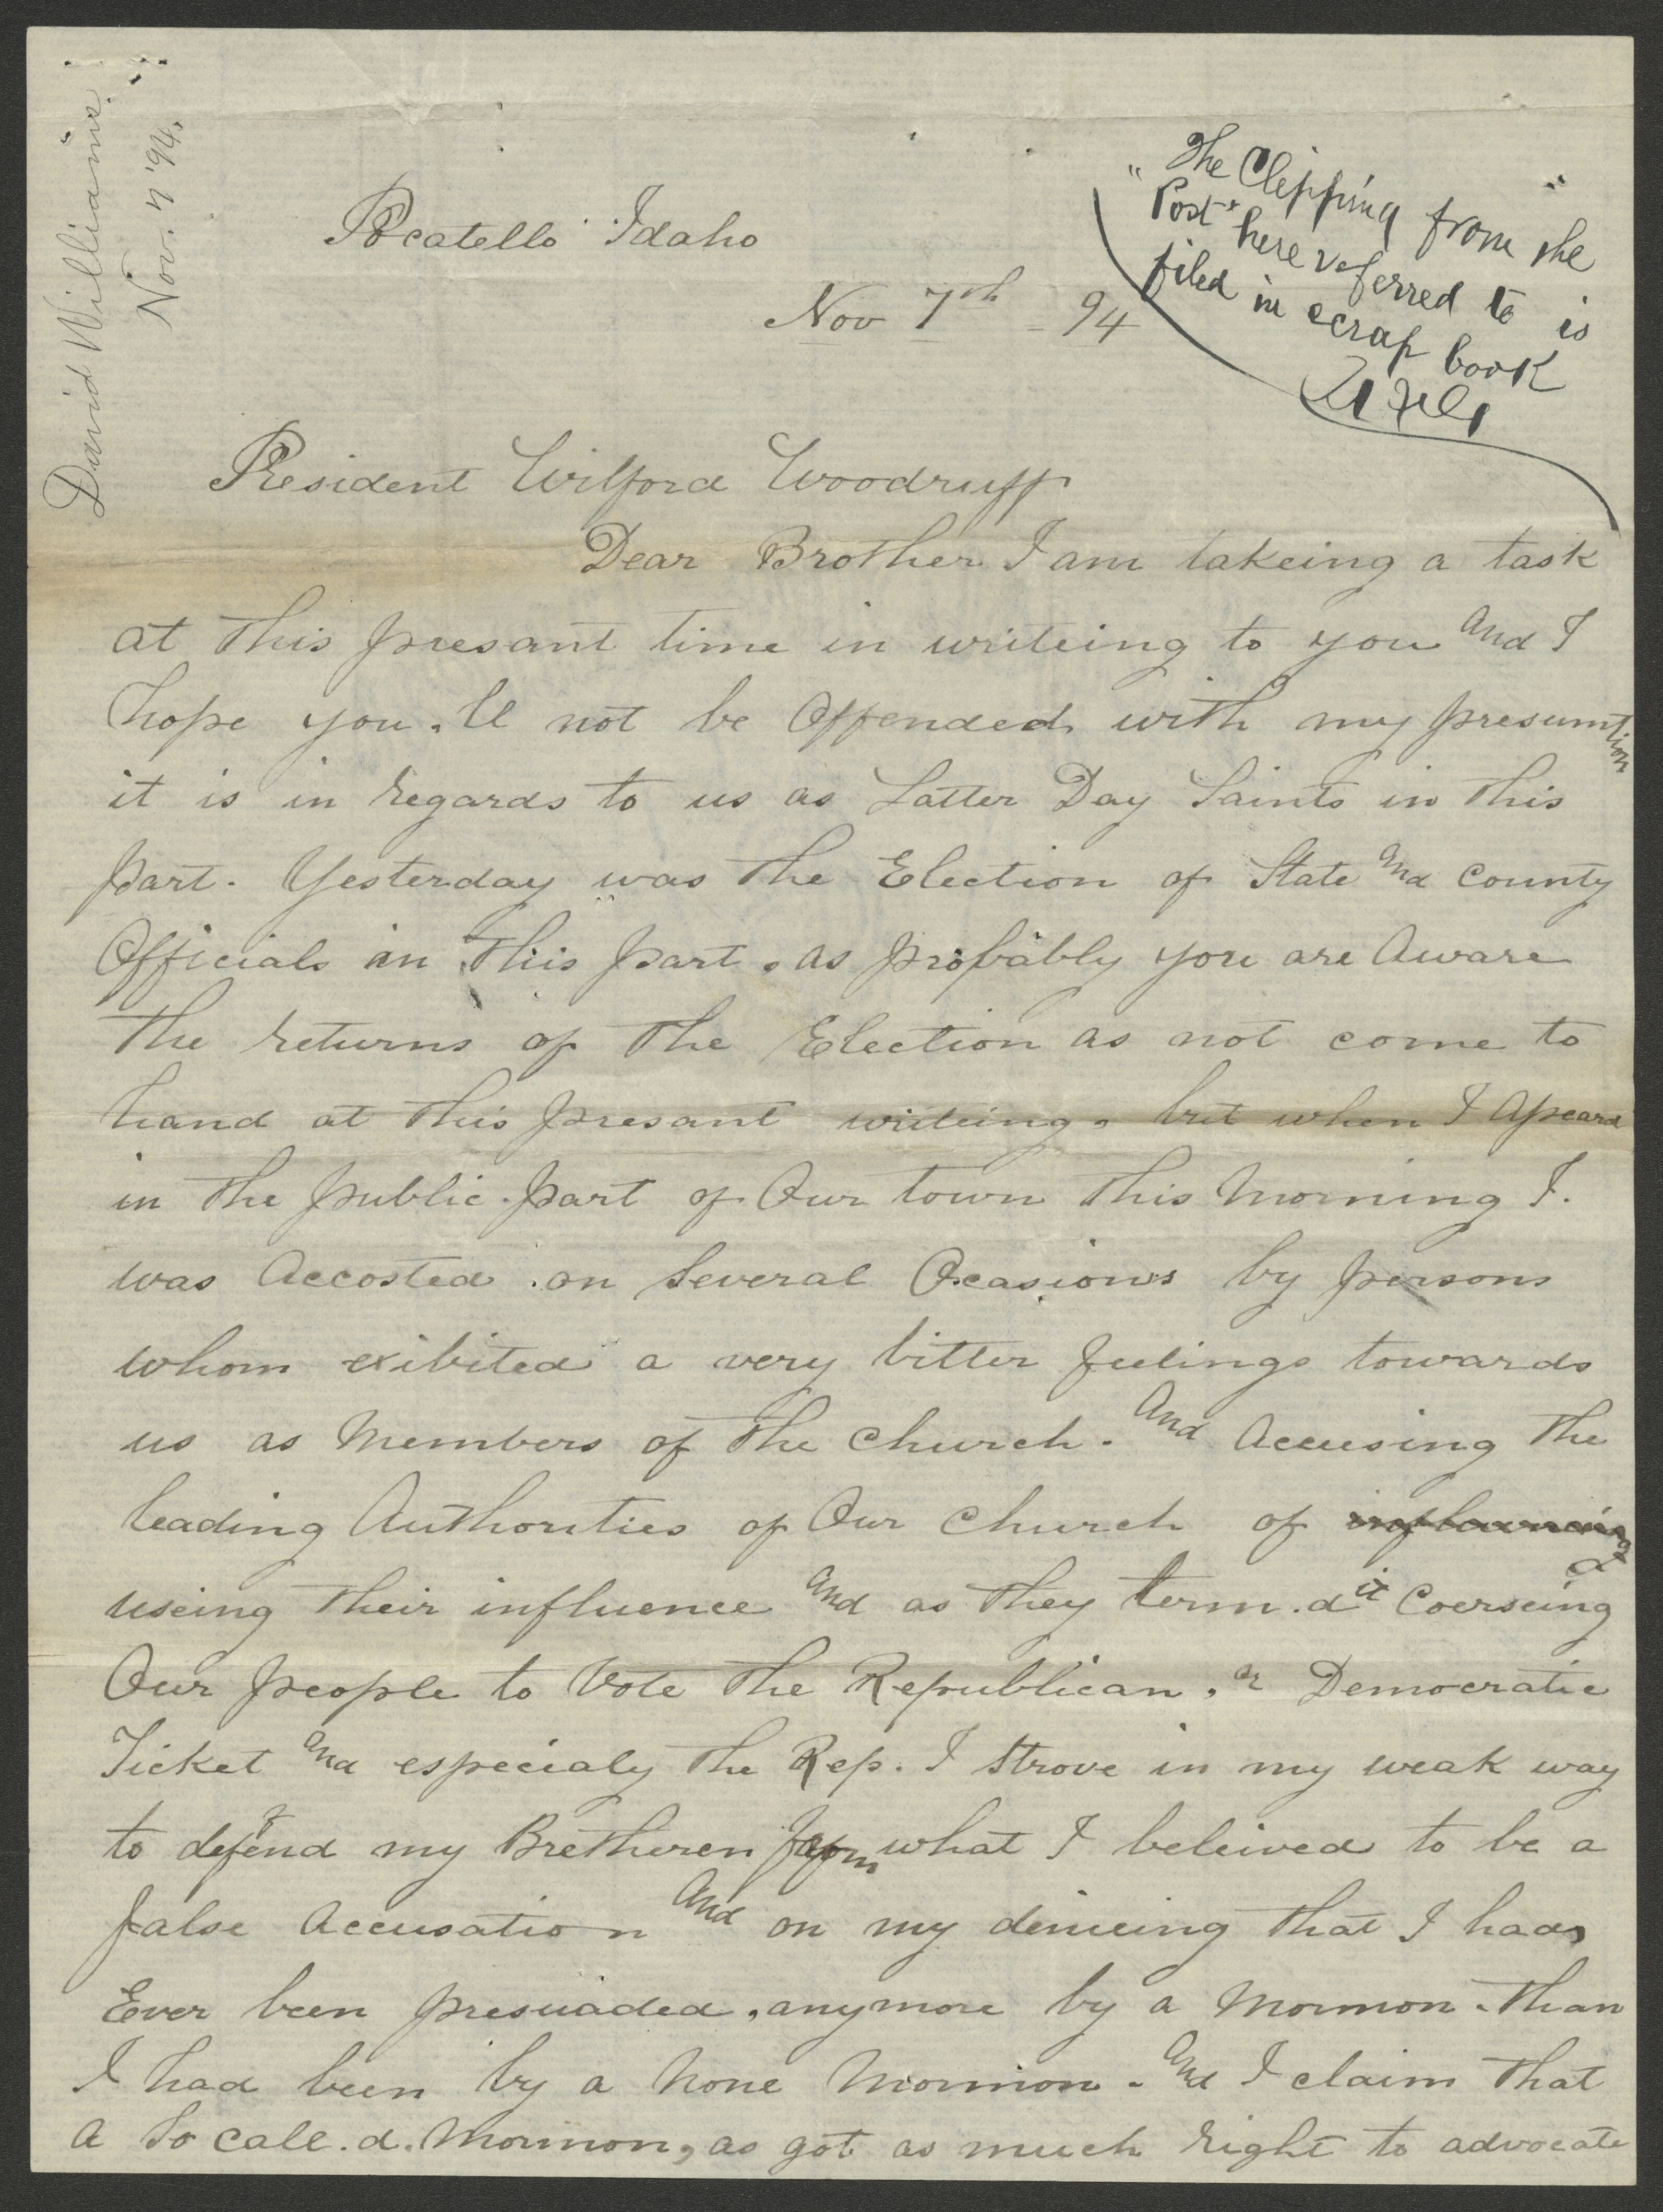 David Williams
Nov. 7 '94.
"The Clipping from the
Post" here referred to is
filed in scrap book
Pocatello Idaho
Nov 7th - 94
President Wilford Woodruff
Dear Brother I am takeing a task
at this presant time in writeing to you and I
hope you.ll not be Offended with my presumtion
it is in regards to us as Latter Day Saints in this
part. Yesterday was the Election of State and County
Officials in this part. as probably you are aware
the returns of the Election as not come to
hand at this presant writeing. but when I apeard
in the public part of Our town this Morning I.
was Accosted on several Ocasions by persons
whom exibited a very bitter feelings towards
us as Members of the Church. And Accusing the
leading Authorities of Our Church of
useing their influence and as they term.d it Coerseing
Our people to Vote the Republican, or Democratic
Ticket and especialy the Rep. I strove in my weak way
to defend my Bretheren from what I beleived to be a
false Accusation And on my denieing that I had
Ever been presuaded, anymore by a Mormon. than
I had been by a None Mormon. And I claim that
a So call.d. Mormon, as got as much right to advocate